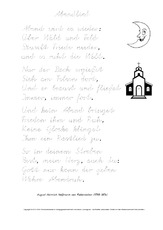 Abendlied
Abend wird es wieder:
Über Wald und Feld
Säuselt Frieden nieder,
und es ruht die Welt.
Nur der Bach ergießet
Sich am Felsen dort,
Und er braust und fließet
Immer, immer fort.
Und kein Abend bringet
Frieden ihm und Ruh,
Keine Glocke klinget
Ihm ein Rastlied zu.
So in deinem Streben
Bist, mein Herz, auch du:
Gott nur kann dir geben
Wahre Abendruh.
August Heinrich Hoffmann von Fallersleben (1798-1874)